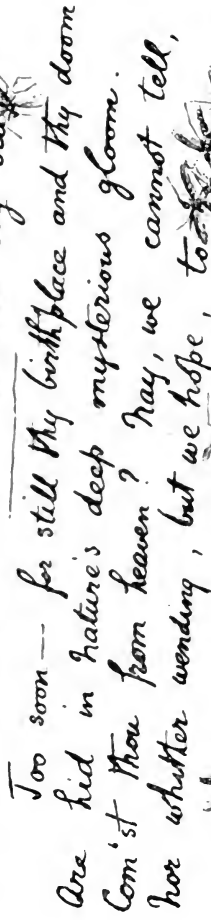 Too soon — for still thy birthplace and thy doom
Are hid in nature's deep mysterious gloom.
Com'st thou from heaven? Nay, we cannot tell,
Nor whither wending, but we hope, to